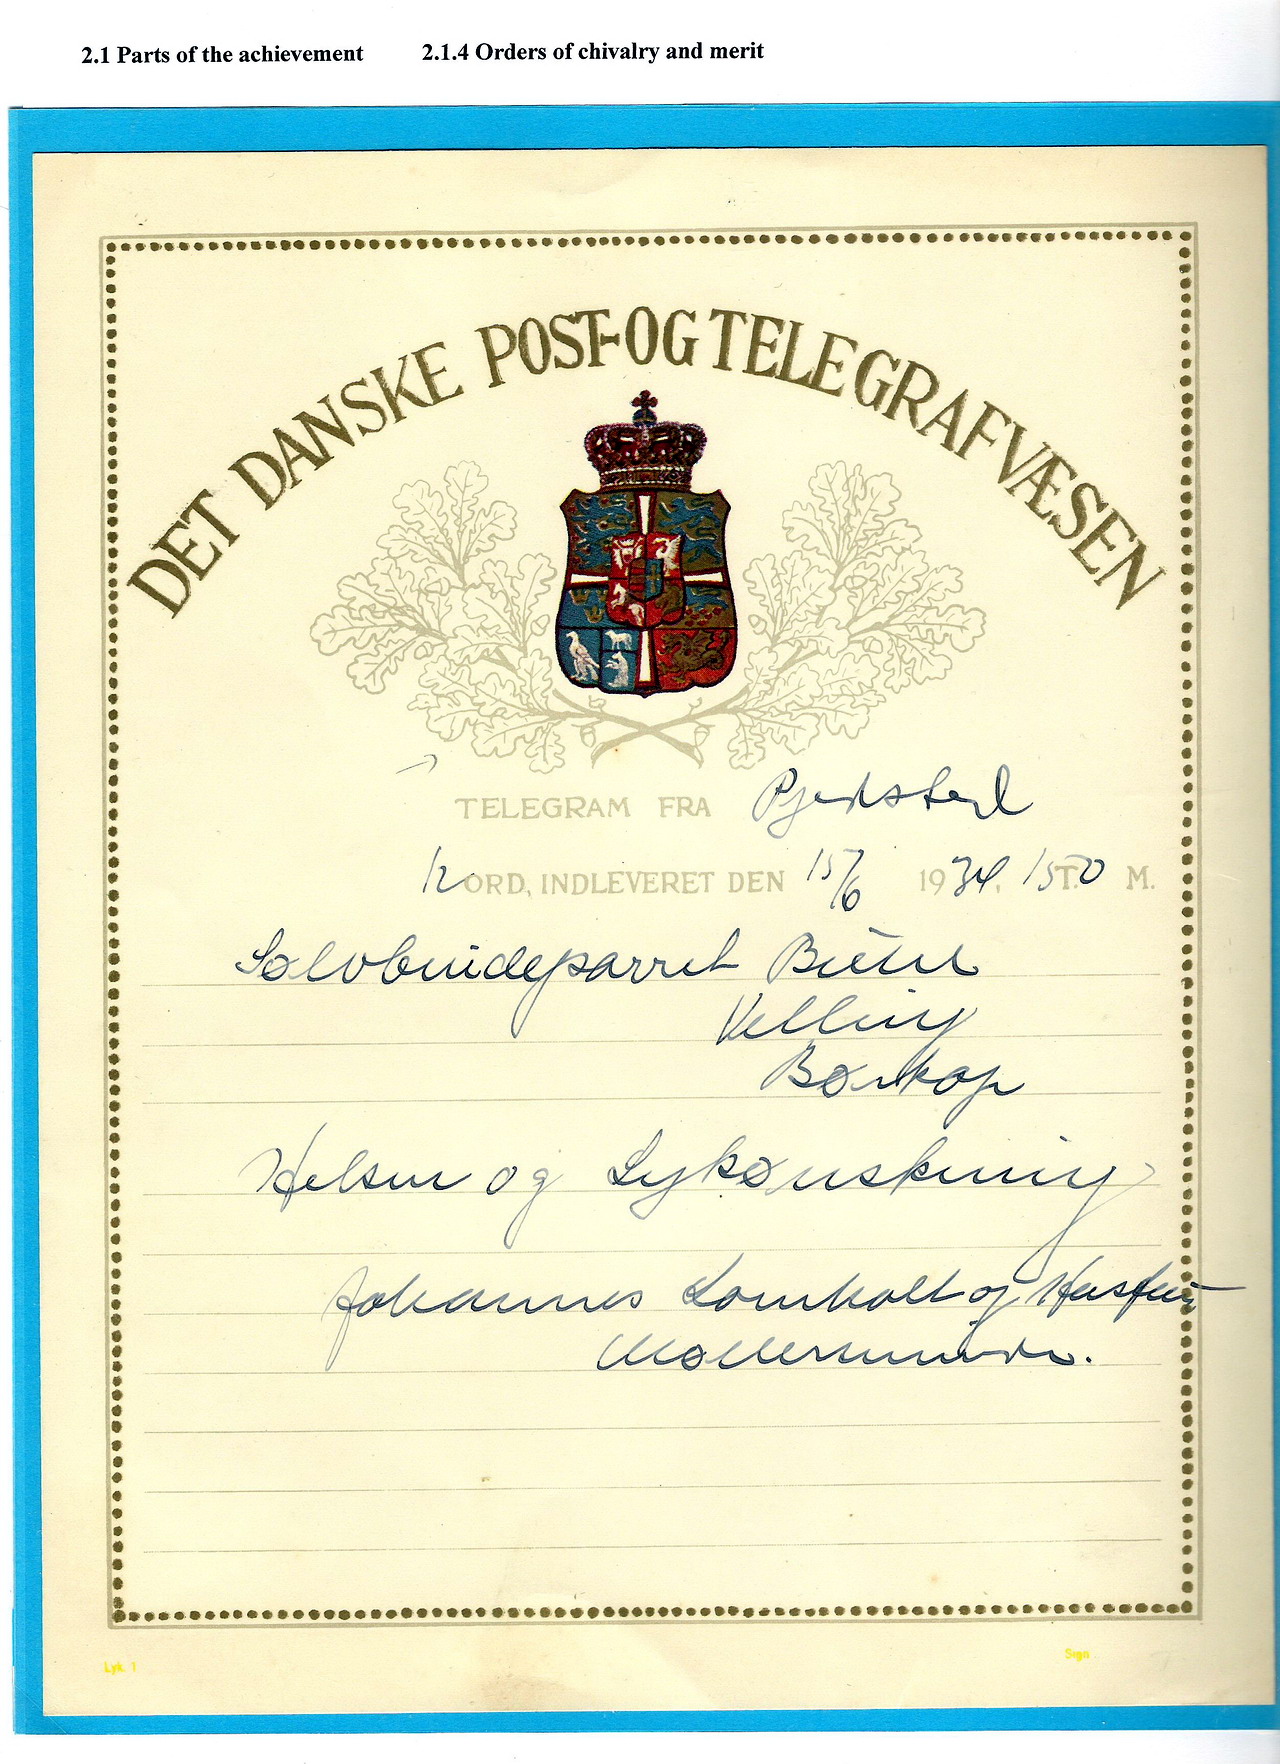 2.1 Parts of the achievement 2.1.4 Orders of chivalry and merit
DET DANSKE POST-OG TELEGRAFVÆSEN
TELEGRAM FRA Pjedsted
12 ORD, INDLEVERET DEN 15/6 1934. 1550 T. M.
Sølvbrudeparret
Velling
Børkop
Hilsen og Lykønskning
Johannes Lomholt og Hustru
Lyk. 1 Sign